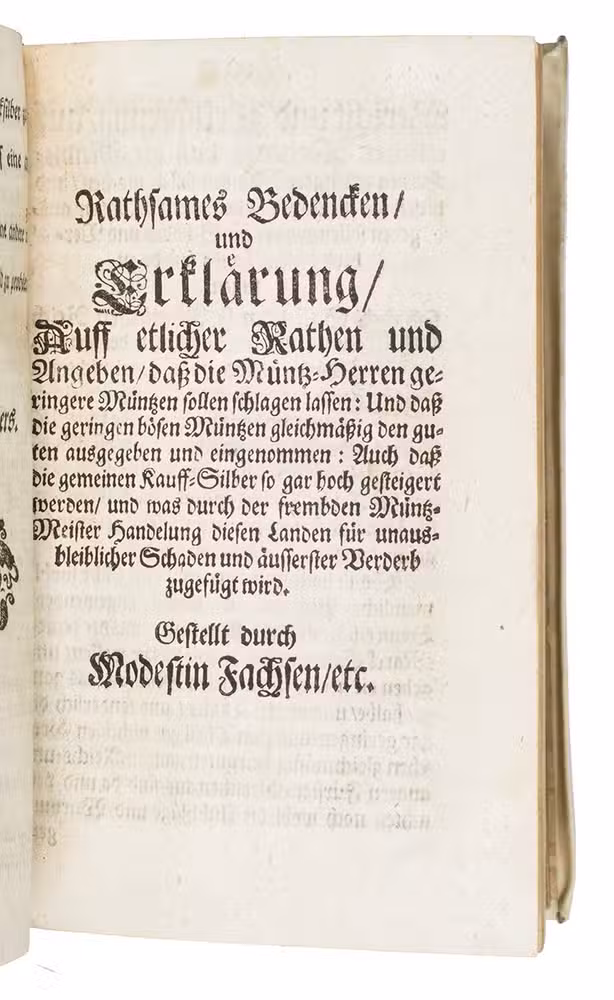 eine
andere
ers.
Rathsames Bedencken/
und
Erklärung/
Auff etlicher Rathen und
Angeben/ daß die Müntz-Herren ge-
ringere Müntzen sollen schlagen lassen: Und daß
die geringen bösen Müntzen gleichmäßig den gu-
ten ausgegeben und eingenommen: Auch daß
die gemeinen Kauff-Silber so gar hoch gesteigert
werden/ und was durch der frembden Müntz-
Meister Handelung diesen Landen für unaus-
bleiblicher Schaden und äusserster Verderb
zugefügt wird.
Gestellt durch
Modestin Fachsen/etc.